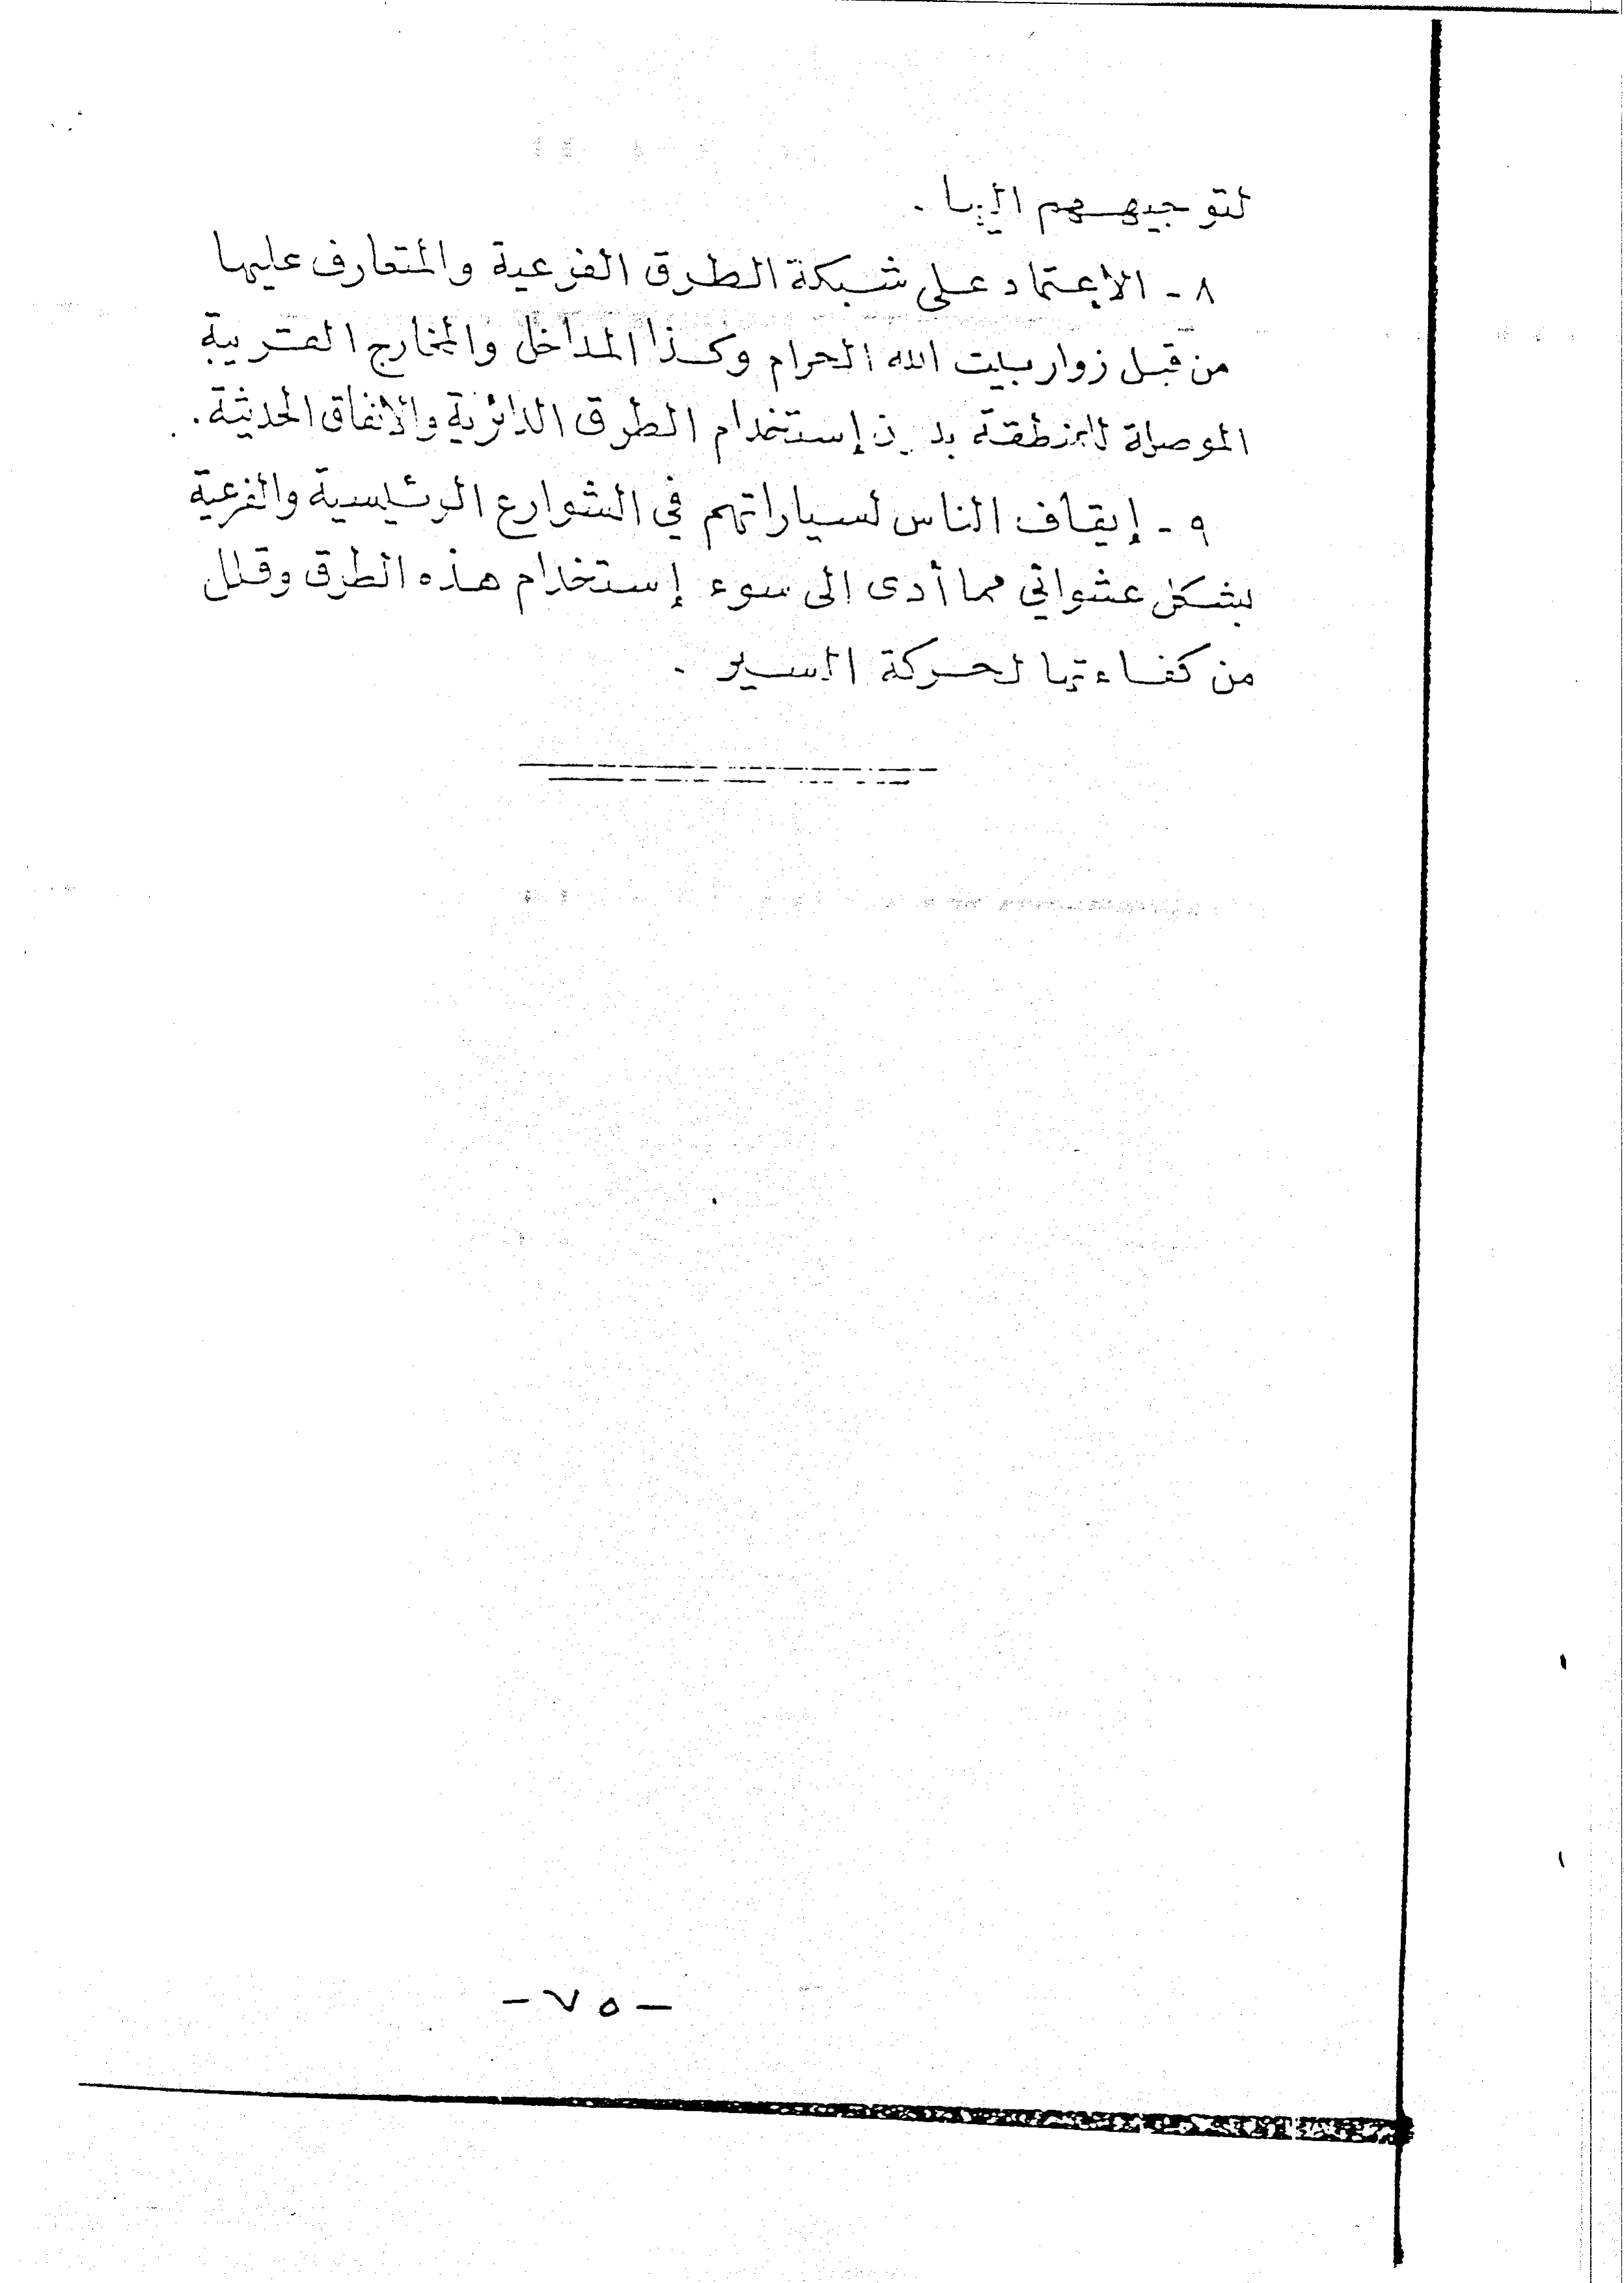 لتوجيههم اليها .
٨ - الإعتماد على شبكة الطرق الفرعية والمتعارف عليها
من قبل زوار بيت الله الحرام وكذا المداخل والمخارج القريبة
الموصلة للمنطقة بدون إستخدام الطرق الدائرية والأنفاق الحديثة .
٩ - إيقاف الناس لسياراتهم في الشوارع الرئيسية والفرعية
بشكل عشوائي مما أدى الى سوء إستخدام هذه الطرق وقلل
من كفاءتها لحركة السير .
- ٧٥ -